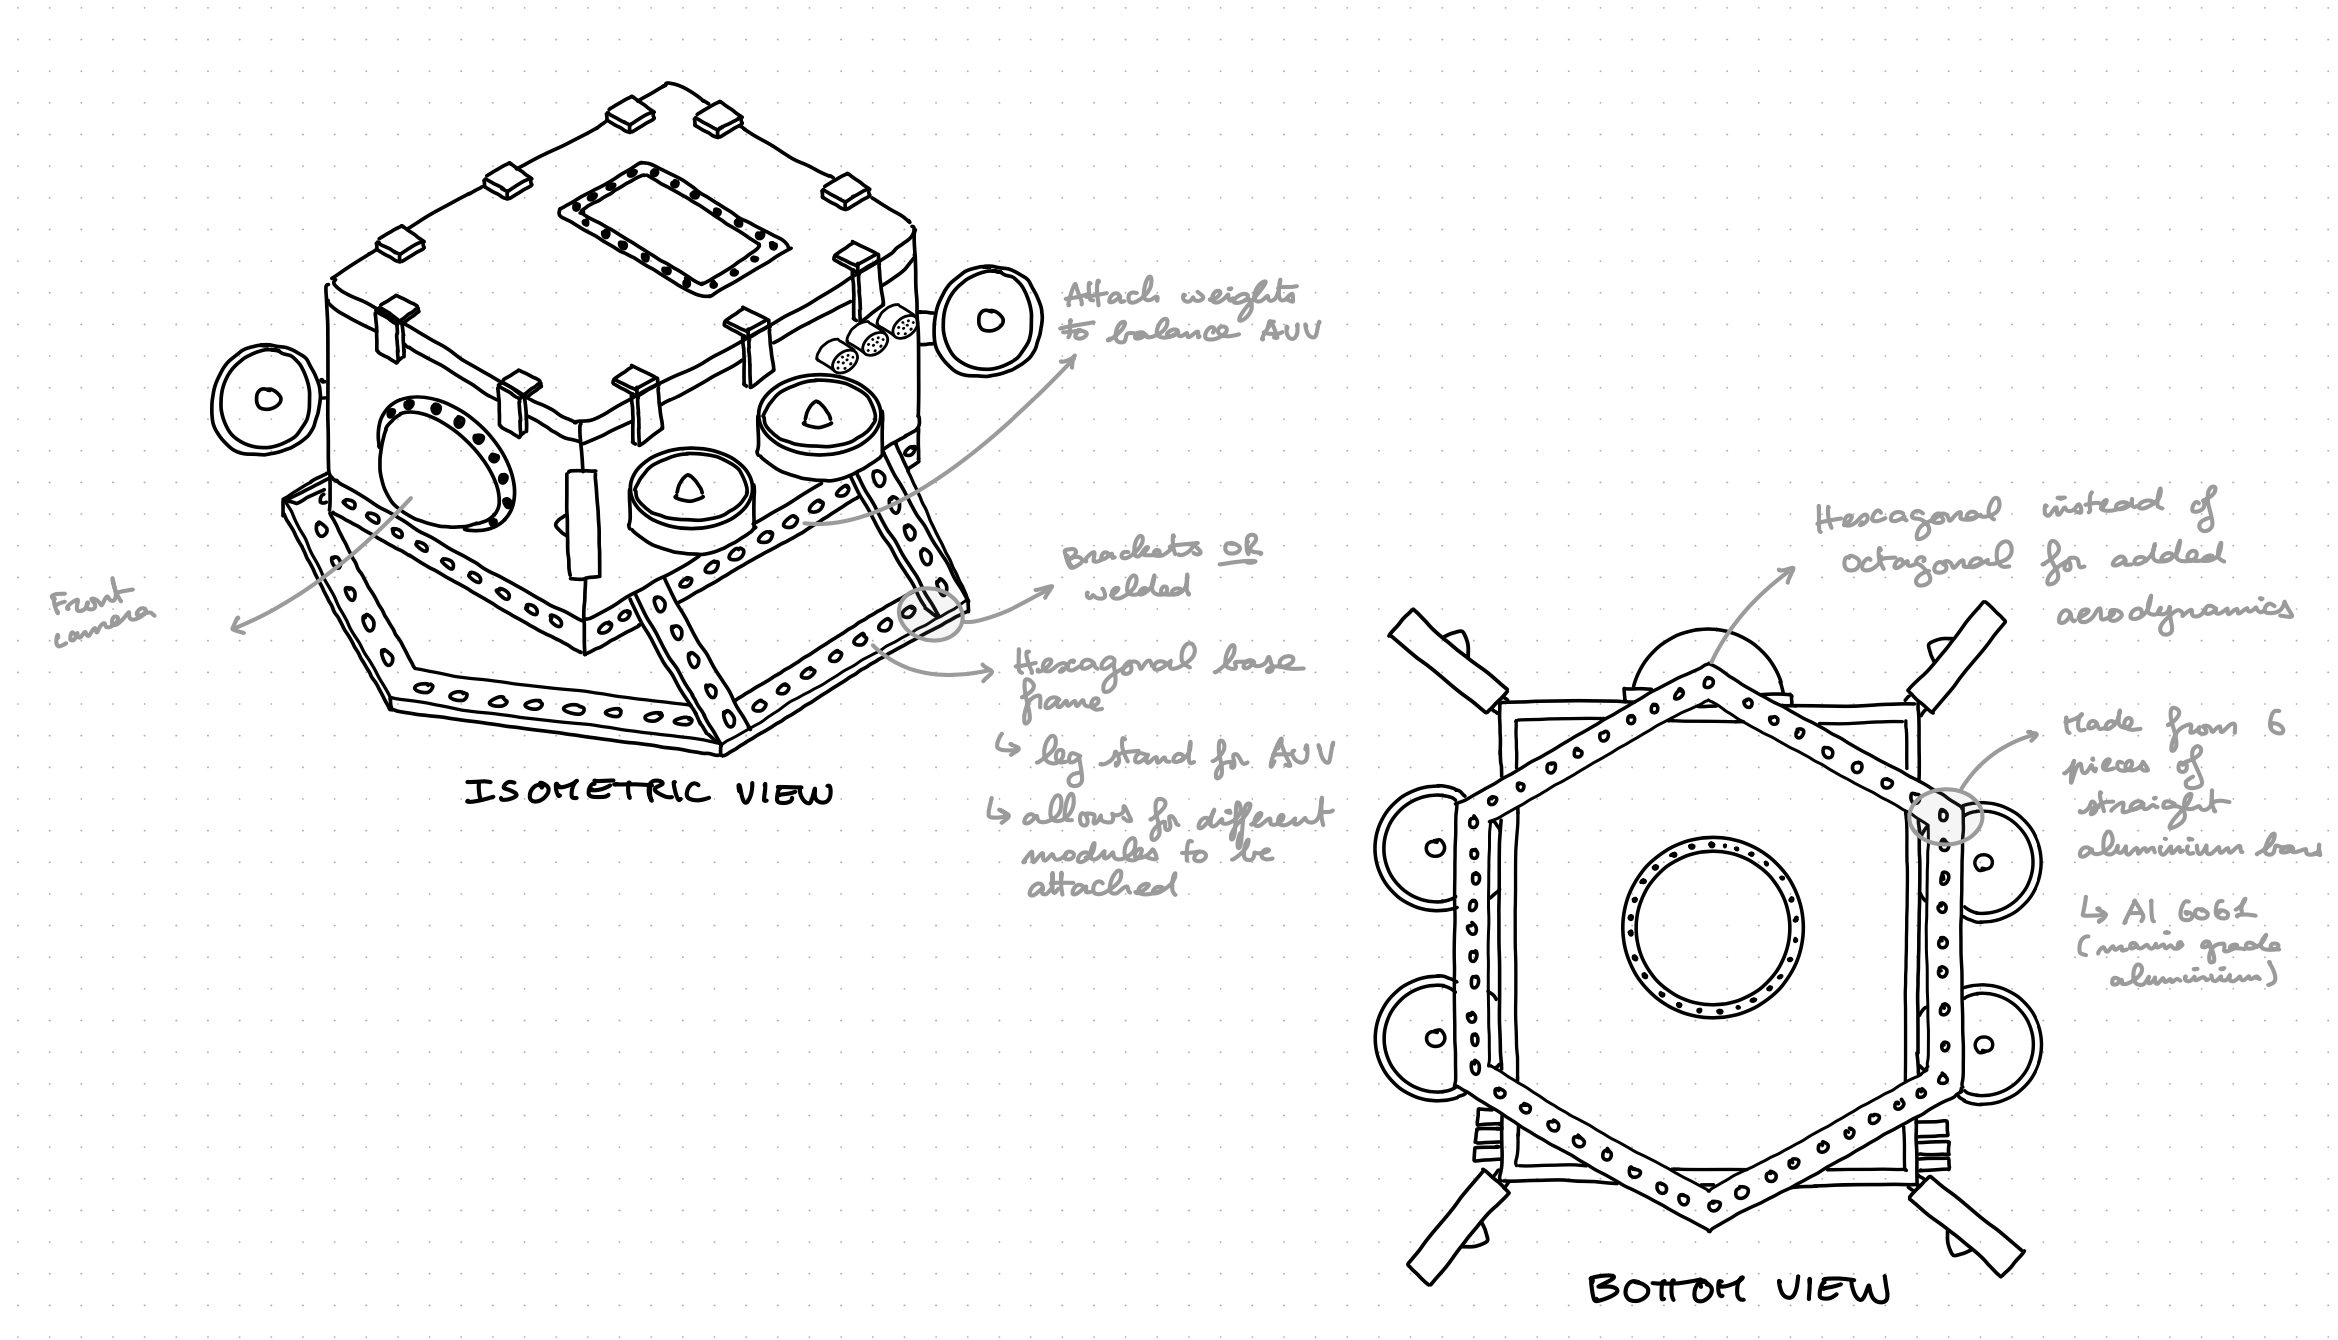 Attach weights
to balance AUV
Front
camera
Brackets OR
welded
Hexagonal base
frame
↳ leg stand for AUV
↳ allows for different
modules to be
attached
ISOMETRIC VIEW
Hexagonal instead of
octagonal for added
aerodynamics
Made from 6
pieces of
straight
aluminium bars
↳ Al 6061
(marine grade
aluminium)
BOTTOM VIEW